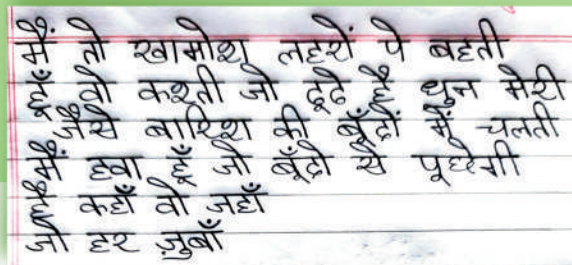 मैं तो खामोश लहरों पे बहती
हूँ वो कश्ती जो ढूढे है धुन मेरी
जैसे बारिश की बूँदों में चलती
मैं हवा हूँ जो बूँदो से पूछेगी
है कहाँ वो जहाँ
जो हर ज़ुबाँ